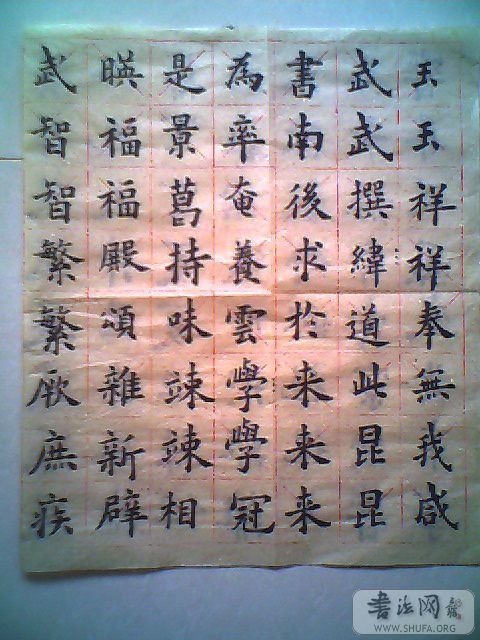 玉玉祥祥奉無我咸
武武撰緯道此昆昆
書南後求於来来来
為率奄養雲學學冠
是景葛持味竦竦相
暎福福殿頌雜新辟
武智智繁繁厥庶疾
書法网
WWW.SHUFA.ORG